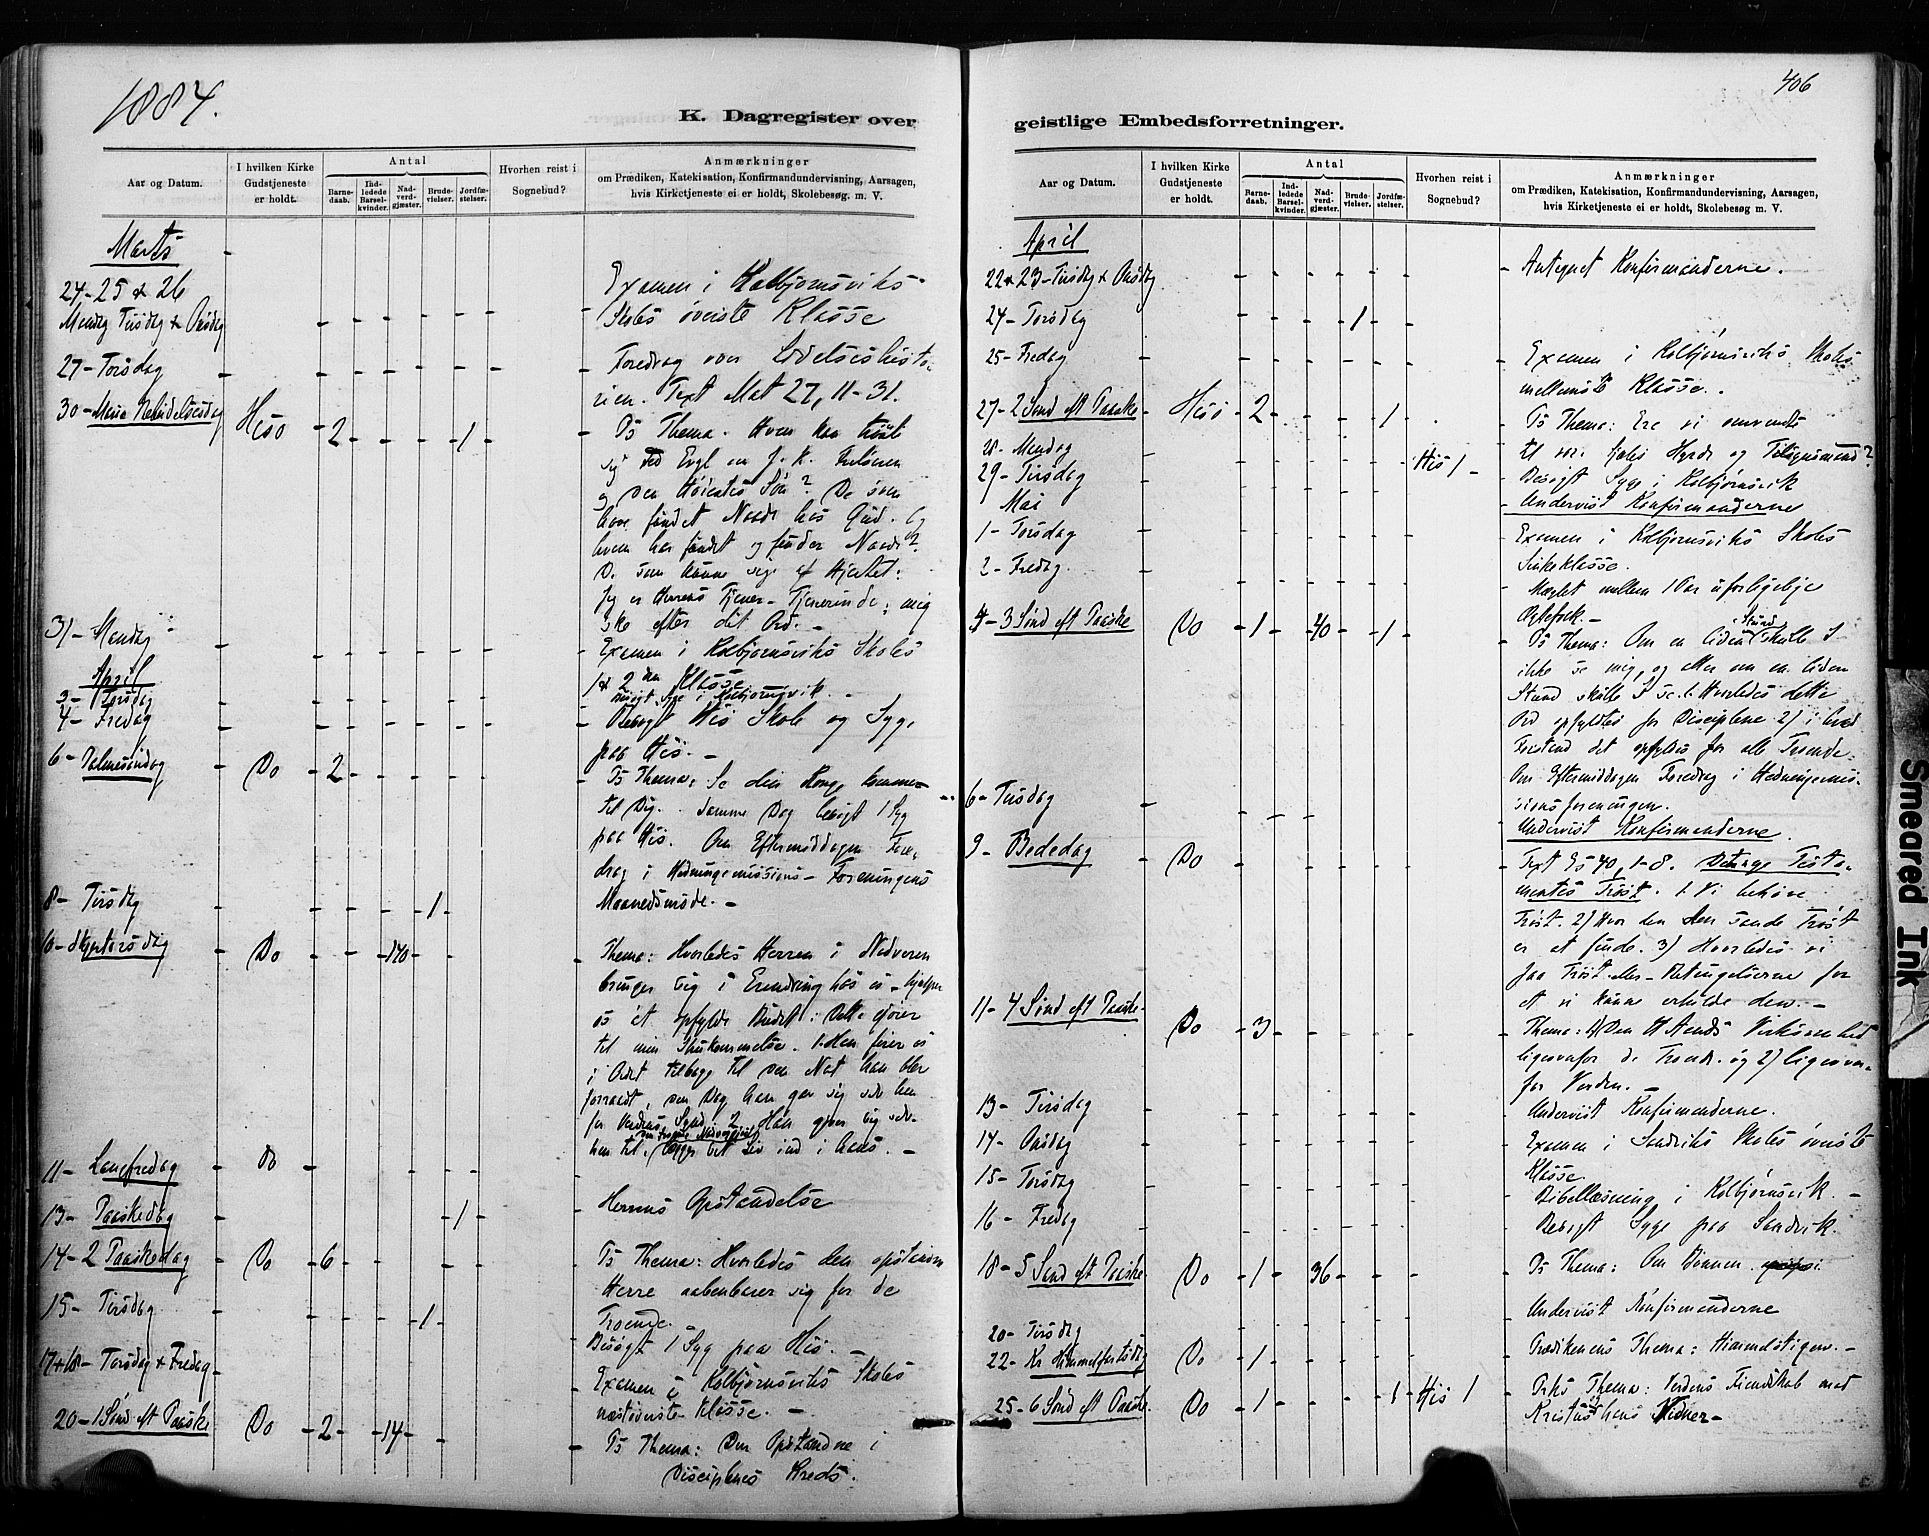 1884.
406
K. Dagregister over
geistlige Embedsforretninger.
Aar og Datum.
I hvilken Kirke Gudstjeneste er holdt.
Antal
Barnedaab.
Indledede Barselkvinder.
Nadverdgjæster.
Brudevielser.
Jordfæstelser.
Hvorhen reist i Sognebud?
Anmærkninger
om Prædiken, Katekisation, Konfirmandundervisning, Aarsagen,
hvis Kirketjeneste ei er holdt, Skolebesøg m. V.
Marts
24-25 & 26
Mandag Tirsdag & Onsdag
Examen i Kolbjørnsviks
Skoles øverste Klasse
27- Torsdag
Foredrag over Lidelseshisto-
rien. Text Mat 27, 11-31.
30- Mariæ Bebudelsesdag Hisø 2 1
Ps Thema. Hvem kan trøste
sig ved Evgl om J. K.
og den Høiestes Søn? De som
have fundet Naade hos Gud. Og
hvem har fundet og finder Naade?
De som kunne sige af Hjertet:
Jeg er Herrens Tjener - Tjenerinde, mig
ske efter dit Ord. -
31- Mandag
Examen i Kolbjørnsviks Skoles
1 & 2den Klasse
April
3- Torsdag
besøgt Syge i Kolbjørnsvik.
4- Fredag
Besøgt His Skole og Syge
paa His. -
6- Palmesøndag Do 2
Ps Thema: Se din Konge kommer
til Dig. Samme Dag besøgt 1 Syg
paa His. Om Eftermiddagen Fore-
drag i Hedningemissions-Foreningens
Maanedsmøde. -
8- Tirsdag 1
10- Skjærtorsdag Do 140
Thema: Hvorledes Herren i Nadveren
bringer sig i Erindring hos os - hjelper
os at opfylde Budet: Dette gjører
til min Ihukommelse. 1. Han fører os
i Aand tilbage til den Nat han blev
forraadt, den Dag han gav sig selv hen
for Verdens Synd. 2 Han giver sig selv
hen til
11- Langfredag Do
13- Paaskedag 1
Herrens Opstandelse
14- 2 Paaskedag Do 6
Ps Thema: Hvorledes den opstandne
Herre aabenbarer sig for de
Troende.
15- Tirsdag 1
Besøgt 1 Syg paa His. -
17+18- Torsdag & Fredag
Examen i Kolbjørnsviks Skoles
næstøverste Klasse. -
20- 1 Sønd eft Paaske Do 2 14
Ps Thema: Den Opstandne i
Disciplenes Kreds.
Aar og Datum.
I hvilken Kirke Gudstjeneste er holdt.
Antal
Barnedaab.
Indledede Barselkvinder.
Nadverdgjæster.
Brudevielser.
Jordfæstelser.
Hvorhen reist i Sognebud?
Anmærkninger
om Prædiken, Katekisation, Konfirmandundervisning, Aarsagen,
hvis Kirketjeneste ei er holdt, Skolebesøg m. V.
April
22 & 23- Tirsdag & Onsdag
Antegnet Konfirmanderne.
24- Torsdag 1
25- Fredag
Examen i Kolbjørnsviks Skoles
mellemste Klasse.
27- 2 Sønd eft Paaske Hisø 2 1
Ps Thema: Ere vi omvendte
til vor Sjæls Hyrde og Tilsynsmand?
28. Mandag His 1
Besøgt Syge i Kolbjørnsvik
29- Tirsdag
Undervist Konfirmanderne
Mai
1- Torsdag
Examen i Kolbjørnsviks Skoles
Smaaklasse.
2- Fredag
Mæglet mellem 1 Par uforligelige
Ægtefolk. -
4- 3 Sønd eft Paaske Do 1 40 1
Ps Thema: Om en liden Stund skulle I
ikke se mig, og atter om en liden
Stund skulle I se. 1. Hvorledes dette
Ord opfyldtes for Disciplene 2) i hvad
Forstand det opfyldes for alle Troende.
Om Eftermiddagen Foredrag i Hedningemis-
sionsforeningen.
6- Tirsdag
Undervist Konfirmanderne.
9- Bededag Do
Text Es 40, 1-8. Det nye Testa-
mentes Trøst. 1. Vi behøve
Trøst. 2) Hvor den sande Trøst
er at finde. 3) Hvorledes vi
faa Trøst eller Betingelserne for
at vi kunne erholde den. -
11- 4 Sønd eft Paaske Do 3
Thema: 1) Den H Aands Virksomhed
ligeoverfor de Troende og 2) ligeover-
for Verden. -
13- Tirsdag
Undervist Konfirmanderne.
14- Onsdag
Examen i Sandviks Skoles øverste
Klasse.
15- Torsdag
Bibellæsning i Kolbjørnsvik. -
16- Fredag
Besøgt Syge paa Sandvik.
18- 5 Sønd eft Paaske Do 1 36
Ps Thema: Om Bønnen
20- Tirsdag
Undervist Konfirmanderne
22- Kr Himmelfartsdag Do 1
Prædikenens Thema: Himmelstigen. -
25- 6 Sønd eft Paaske Do 1 1 His 1
Prks Thema: Verdens Fiendskab mod
Kristus & hans Vidner -
Smeared Ink